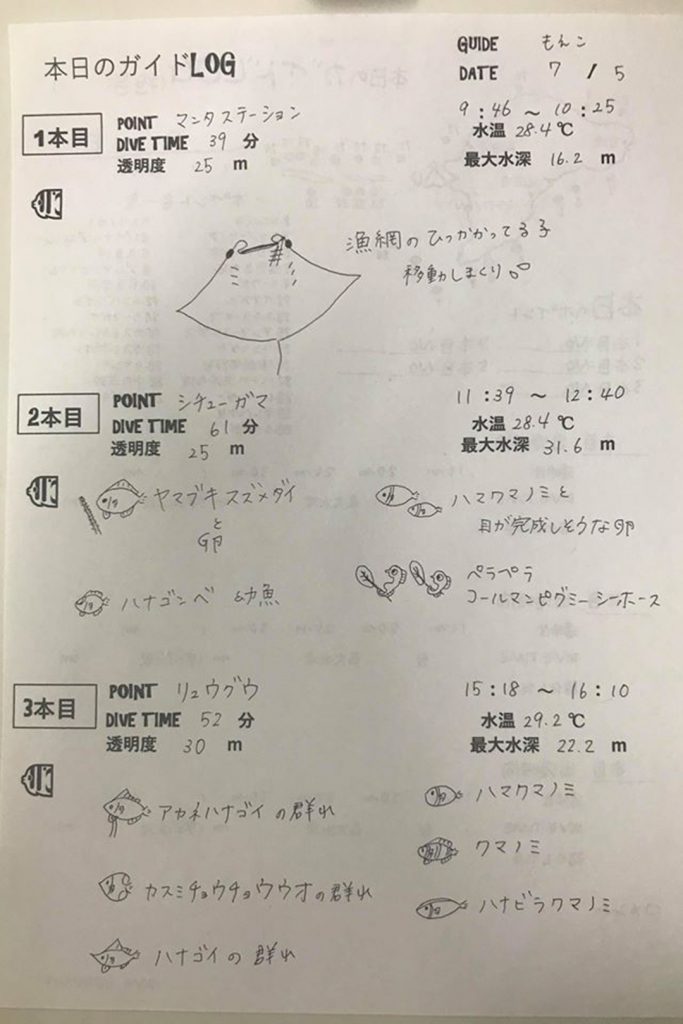 本日のガイドLOG
GUIDE もんこ
DATE 7 / 5
1本目
POINT マンタステーション
DIVE TIME 39 分
透明度 25 m
9:46 ~ 10:25
水温 28.4℃
最大水深 16.2 m
漁網のひっかかってる子
移動しまくり
2本目
POINT シチューガマ
DIVE TIME 61 分
透明度 25 m
11:39 ~ 12:40
水温 28.4℃
最大水深 31.6 m
ヤマブキスズメダイ
と
卵
ハナゴンベ 幼魚
ハマクマノミと
目が完成しそうな卵
ペラペラ
コールマンピグミーシーホース
3本目
POINT リュウグウ
DIVE TIME 52 分
透明度 30 m
15:18 ~ 16:10
水温 29.2℃
最大水深 22.2 m
アカネハナゴイの群れ
カスミチョウチョウウオの群れ
ハナゴイの群れ
ハマクマノミ
クマノミ
ハナビラクマノミ